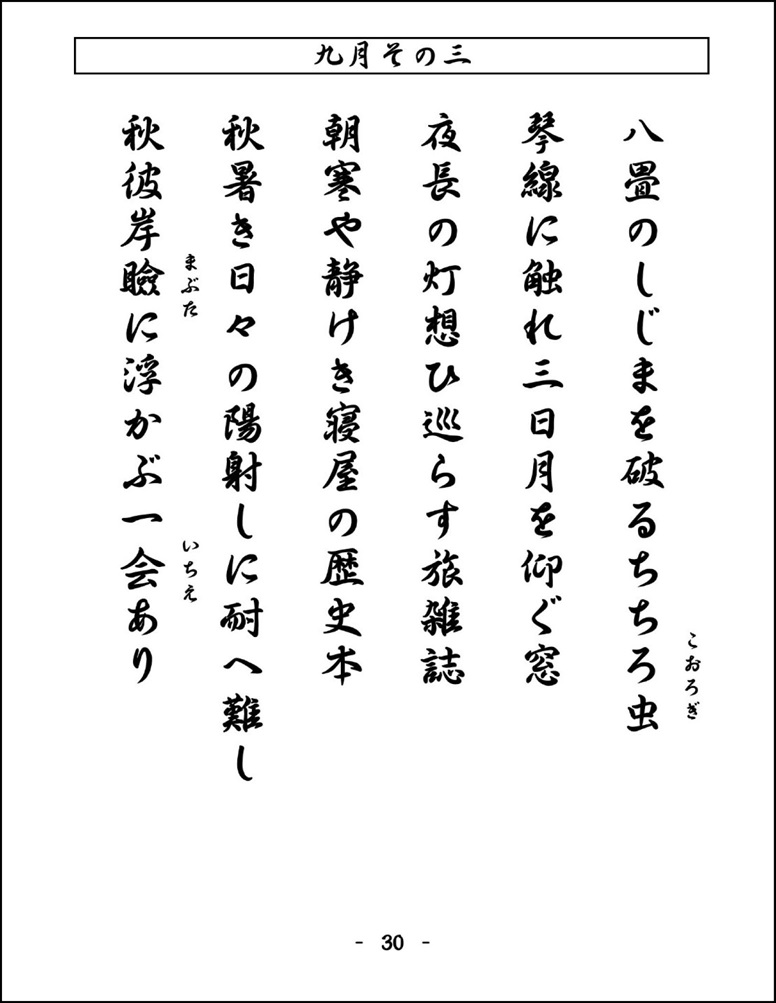 九月その三
八畳のしじまを破るちちろ虫
こおろぎ
琴線に触れ三日月を仰ぐ窓
夜長の灯想ひ巡らす旅雑誌
朝寒や静けき寝屋の歴史本
秋暑き日々の陽射しに耐へ難し
秋彼岸瞼に浮かぶ一会あり
まぶた
いちえ
- 30 -